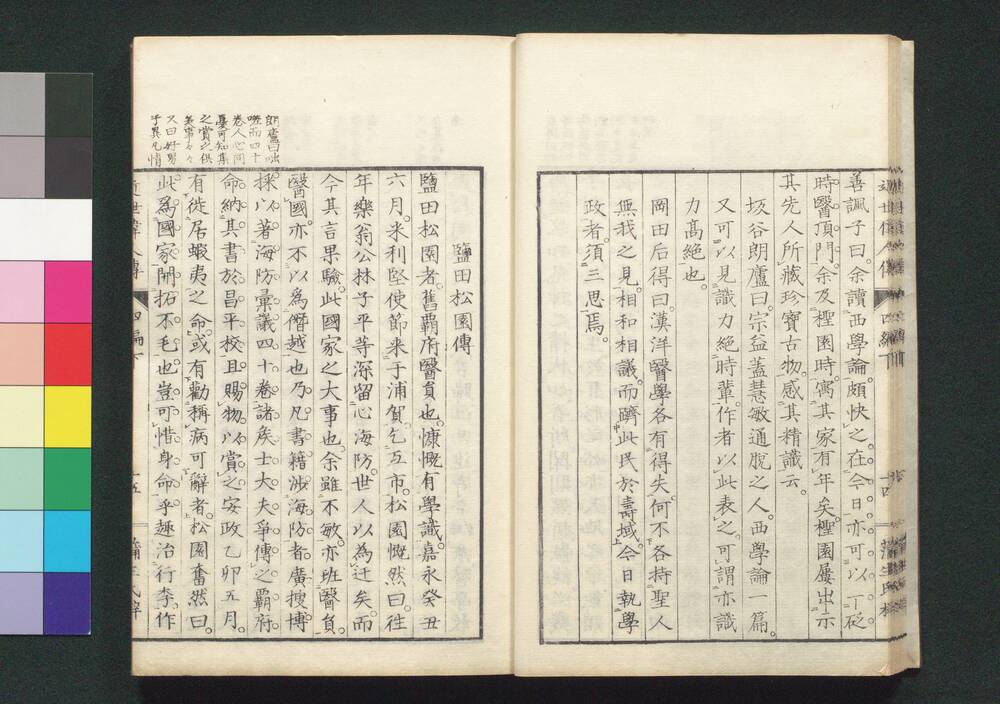 善諷子曰。余讀西學論。頗快之。在今日。亦可以下砭
時醫頂門。余及樫園時。寓其家有年矣。樫園屢出示
其先人所藏珍寶古物。感其精識云。
坂谷朗廬曰。宗益蓋慧敏通脫之人。西學論一篇。
又可以見識力絕時輩。作者以此表之。可謂亦識
力高絕也。
岡田后得曰。漢洋醫學各有得失。何不各持聖人
無我之見。相和相議。而躋此民於壽域。今日執學
政者。須三思焉。
鹽田松園傳
鹽田松園者。舊霸府醫員也。慷慨有學識。嘉永癸丑
六月。米利堅使節來于浦賀。乞互市。松園慨然曰。往
年樂翁公林子平等深留心海防。世人以為迂矣。而
今其言果驗。此國家之大事也。余雖不敏。亦班醫員。
醫國。亦不以為僭越也。乃凡書籍涉海防者。廣搜博
採。以著海防彙議四十卷。諸矦士大夫爭傳之。霸府
命納其書於昌平校。且賜物以賞之。安政乙卯五月。
有徙居蝦夷之命。或有勸稱病可辭者。松園奮然曰。
此為國家開拓不毛也。豈可惜身命乎。趣治行李。作
朗廬曰咄
嗟而四十
卷人心同
憂可知集
之賞之俱
美事々々
又曰好男
子異凡情